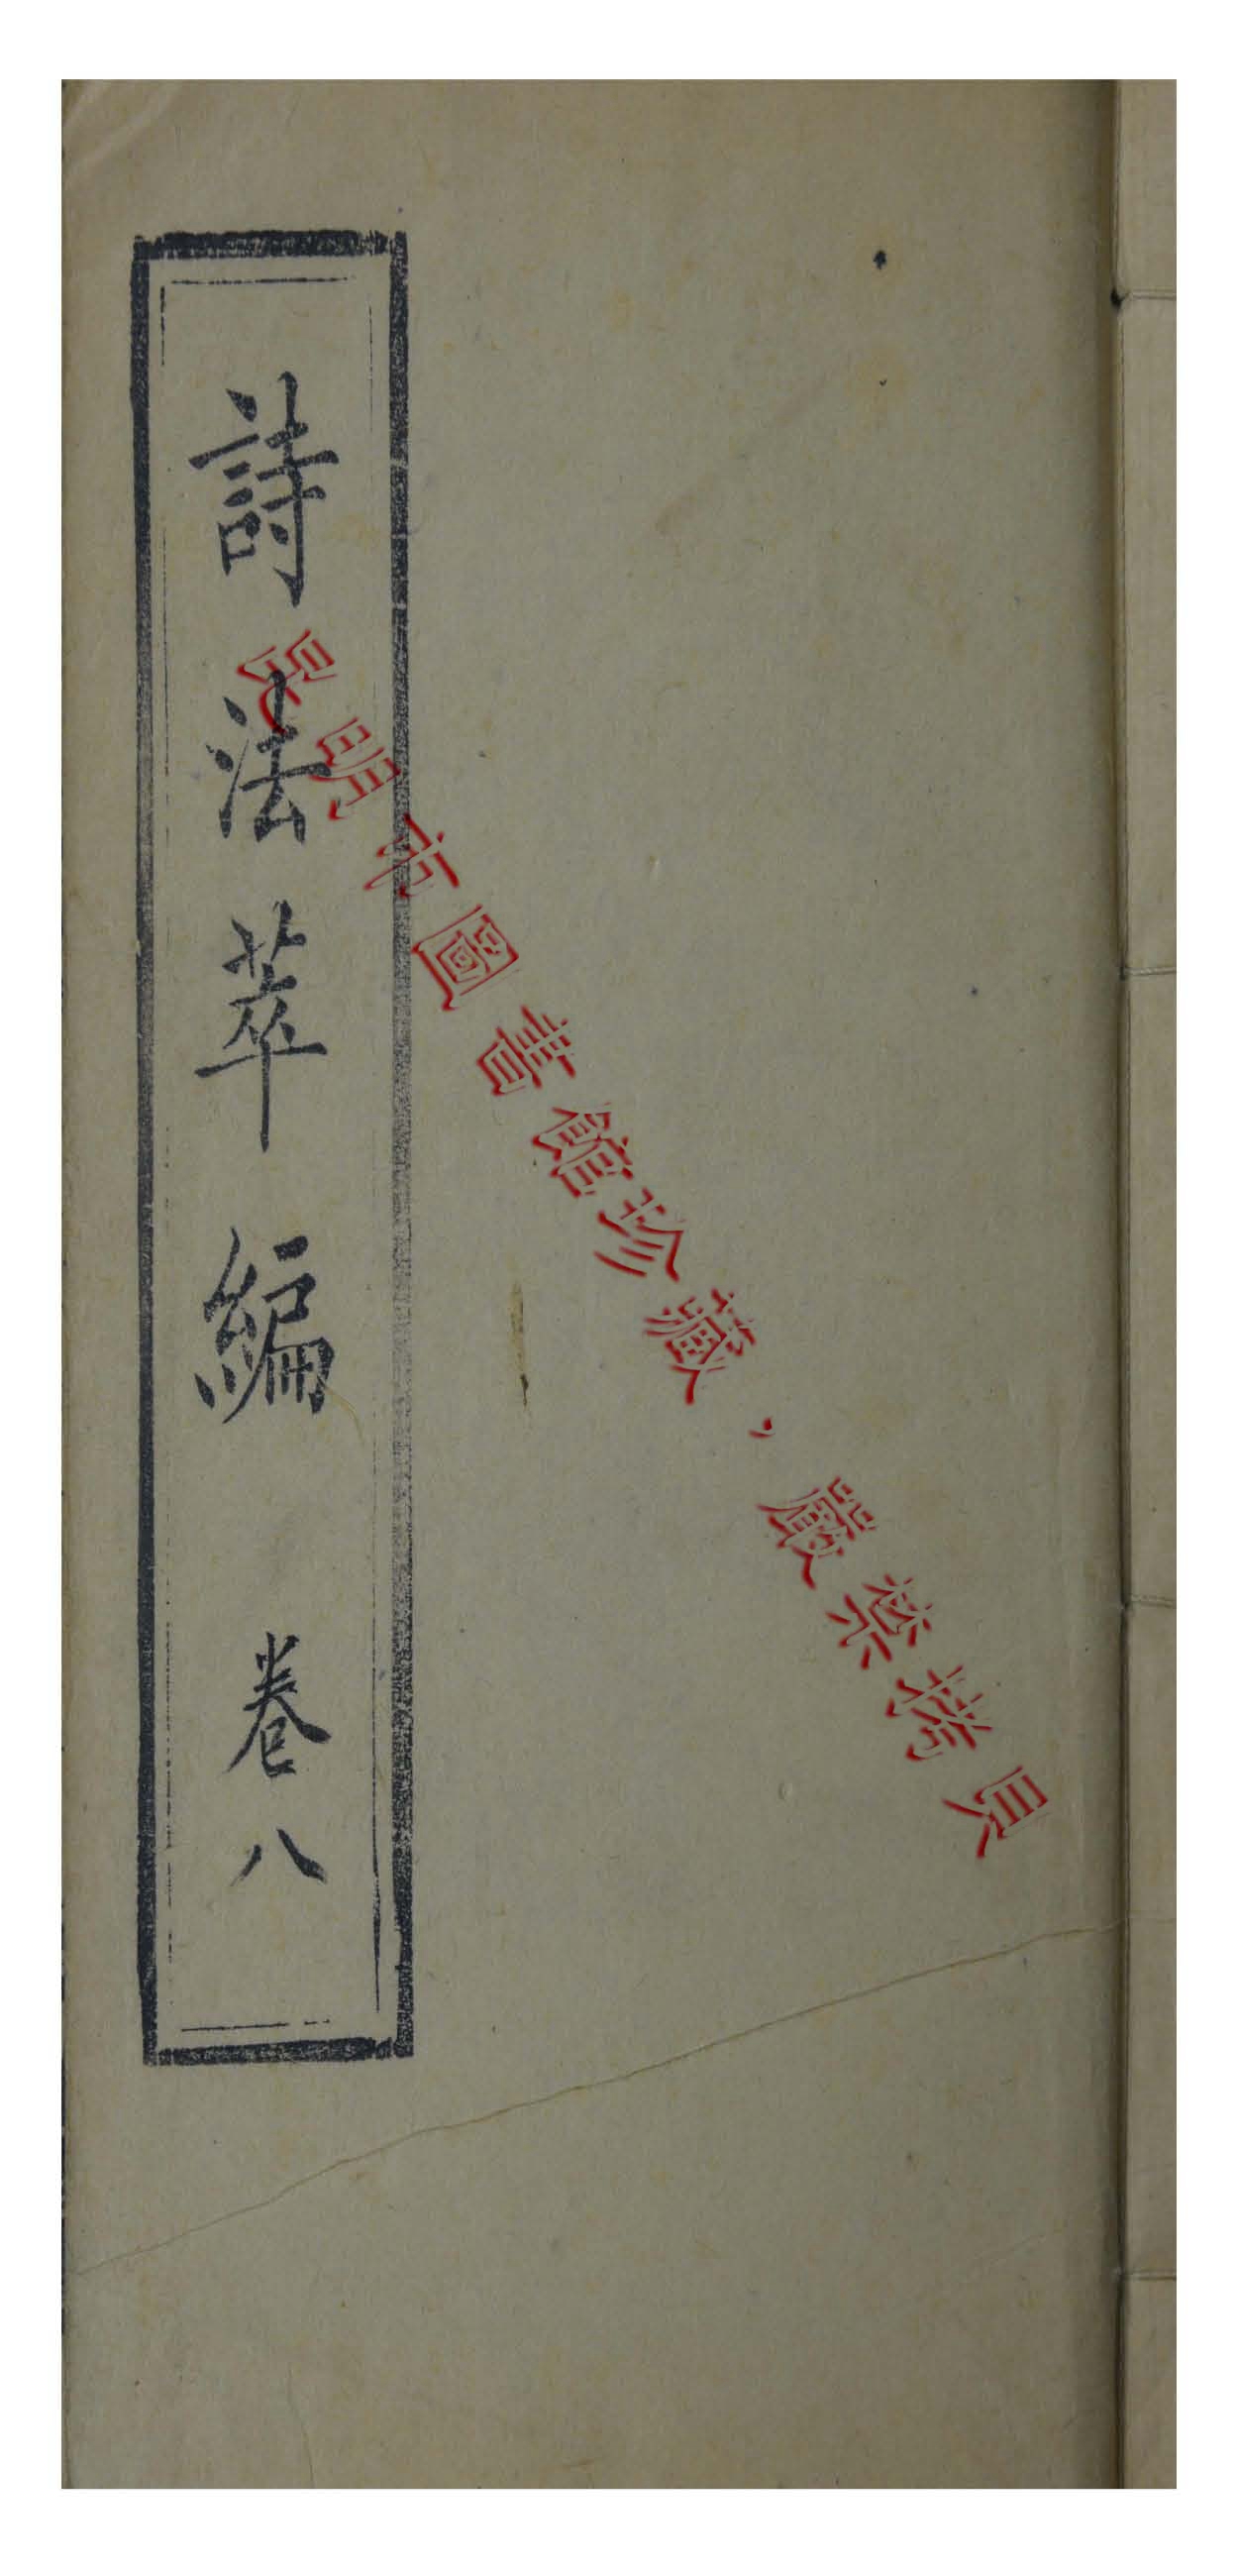 詩法萃編 卷八
昆明市圖書館珍藏，嚴禁拷貝